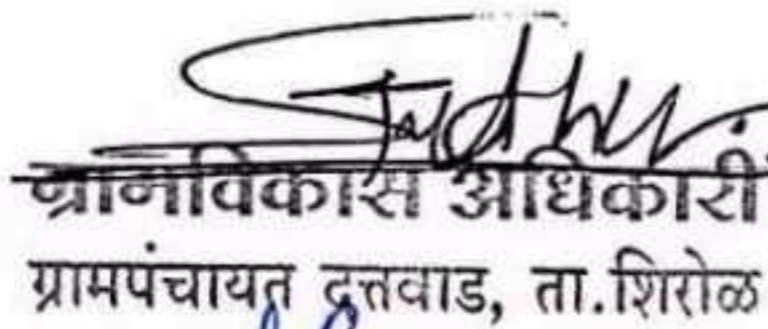 ग्रामविकास अधिकारी
ग्रामपंचायत दत्तवाड, ता.शिरोळ